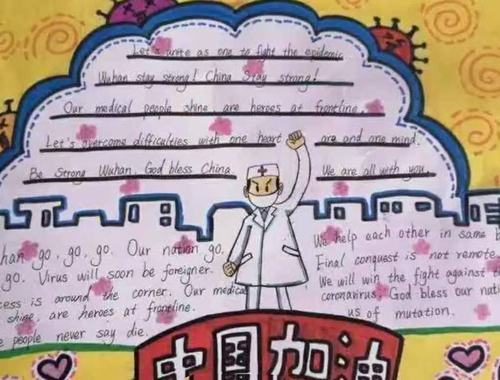 Let's unite as one to fight the epidemic
Wuhan stay strong! China Stay strong!
Our medical people shine are heroes at frontline.
Let's overcome difficulties with one heart are and one mind.
Be Strong Wuhan, God bless China We are all with you.
han go, go, go. Our nation go.
go. Virus will soon be foreigner.
cess is around the corner. Our medical
shine, are heroes at frontline.
people never say die.
We help each other in same b
Final conquest is not remote
We will win the fight against t
coronavirus. God bless our nati
us of mutation.
中国加油